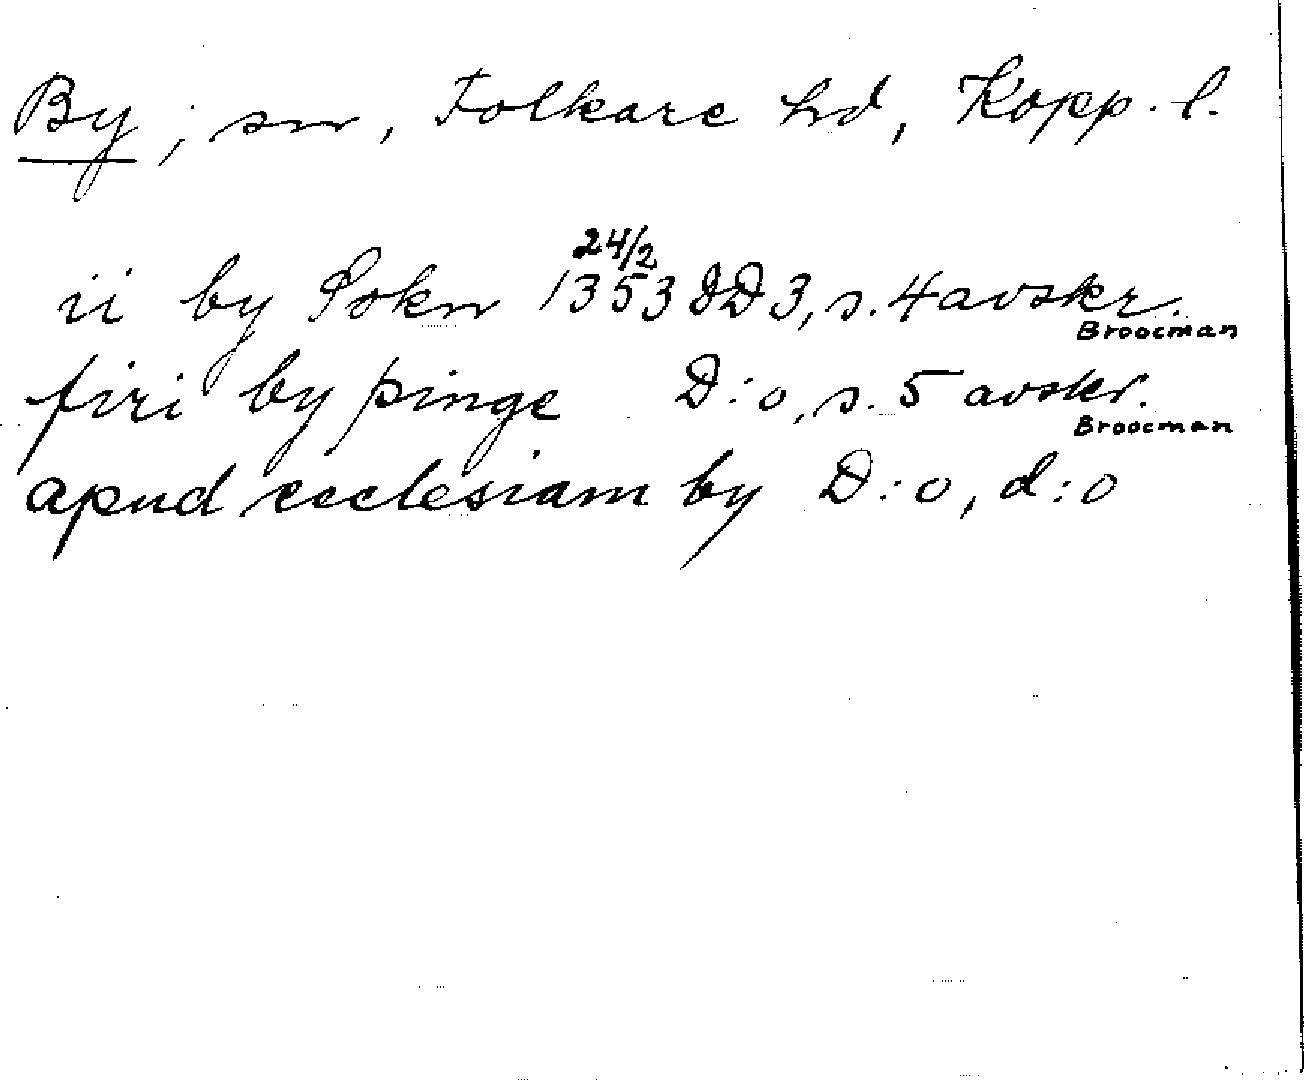 By, sn, Folkare hd, Kopp. l.
24/2
ii by Sokn 1353 DD 3, s. 4 avskr.
Broocman
firi by þinge D:o, s. 5 avskr.
Broocman
apud ecclesiam by D:o, d:o